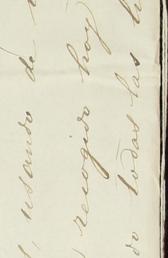 usando de
recogido hoy
do todas las